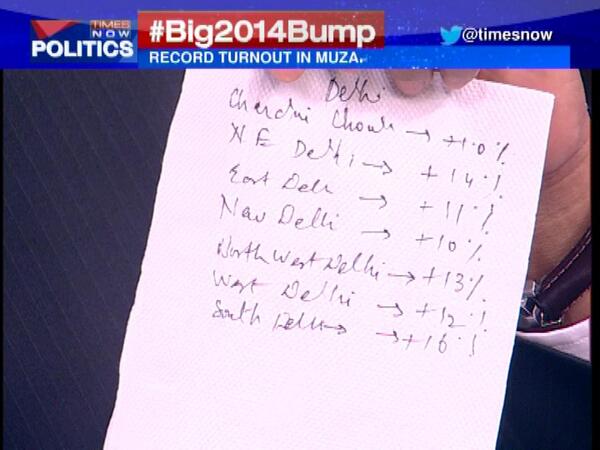 TIMES
NOW
POLITICS
#Big2014Bump
RECORD TURNOUT IN MUZA
@timesnow
Delhi
Chandni Chowk → +10%
N E Delhi → +14%
East Delhi → +11%
New Delhi → +10%
North West Delhi → +13%
West Delhi → +12%
South Delhi → +16%
TIMES NOW